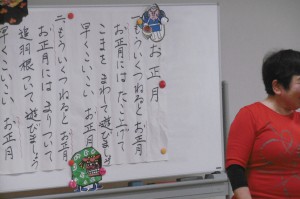 お正月
もういくつねるとお正月
お正月にはたこあげて
こまをまわして遊びましょう
早くこいこいお正月
二、もういくつねるとお正月
お正月にはまりついて
追羽根ついて遊びましょう
早くこいこいお正月